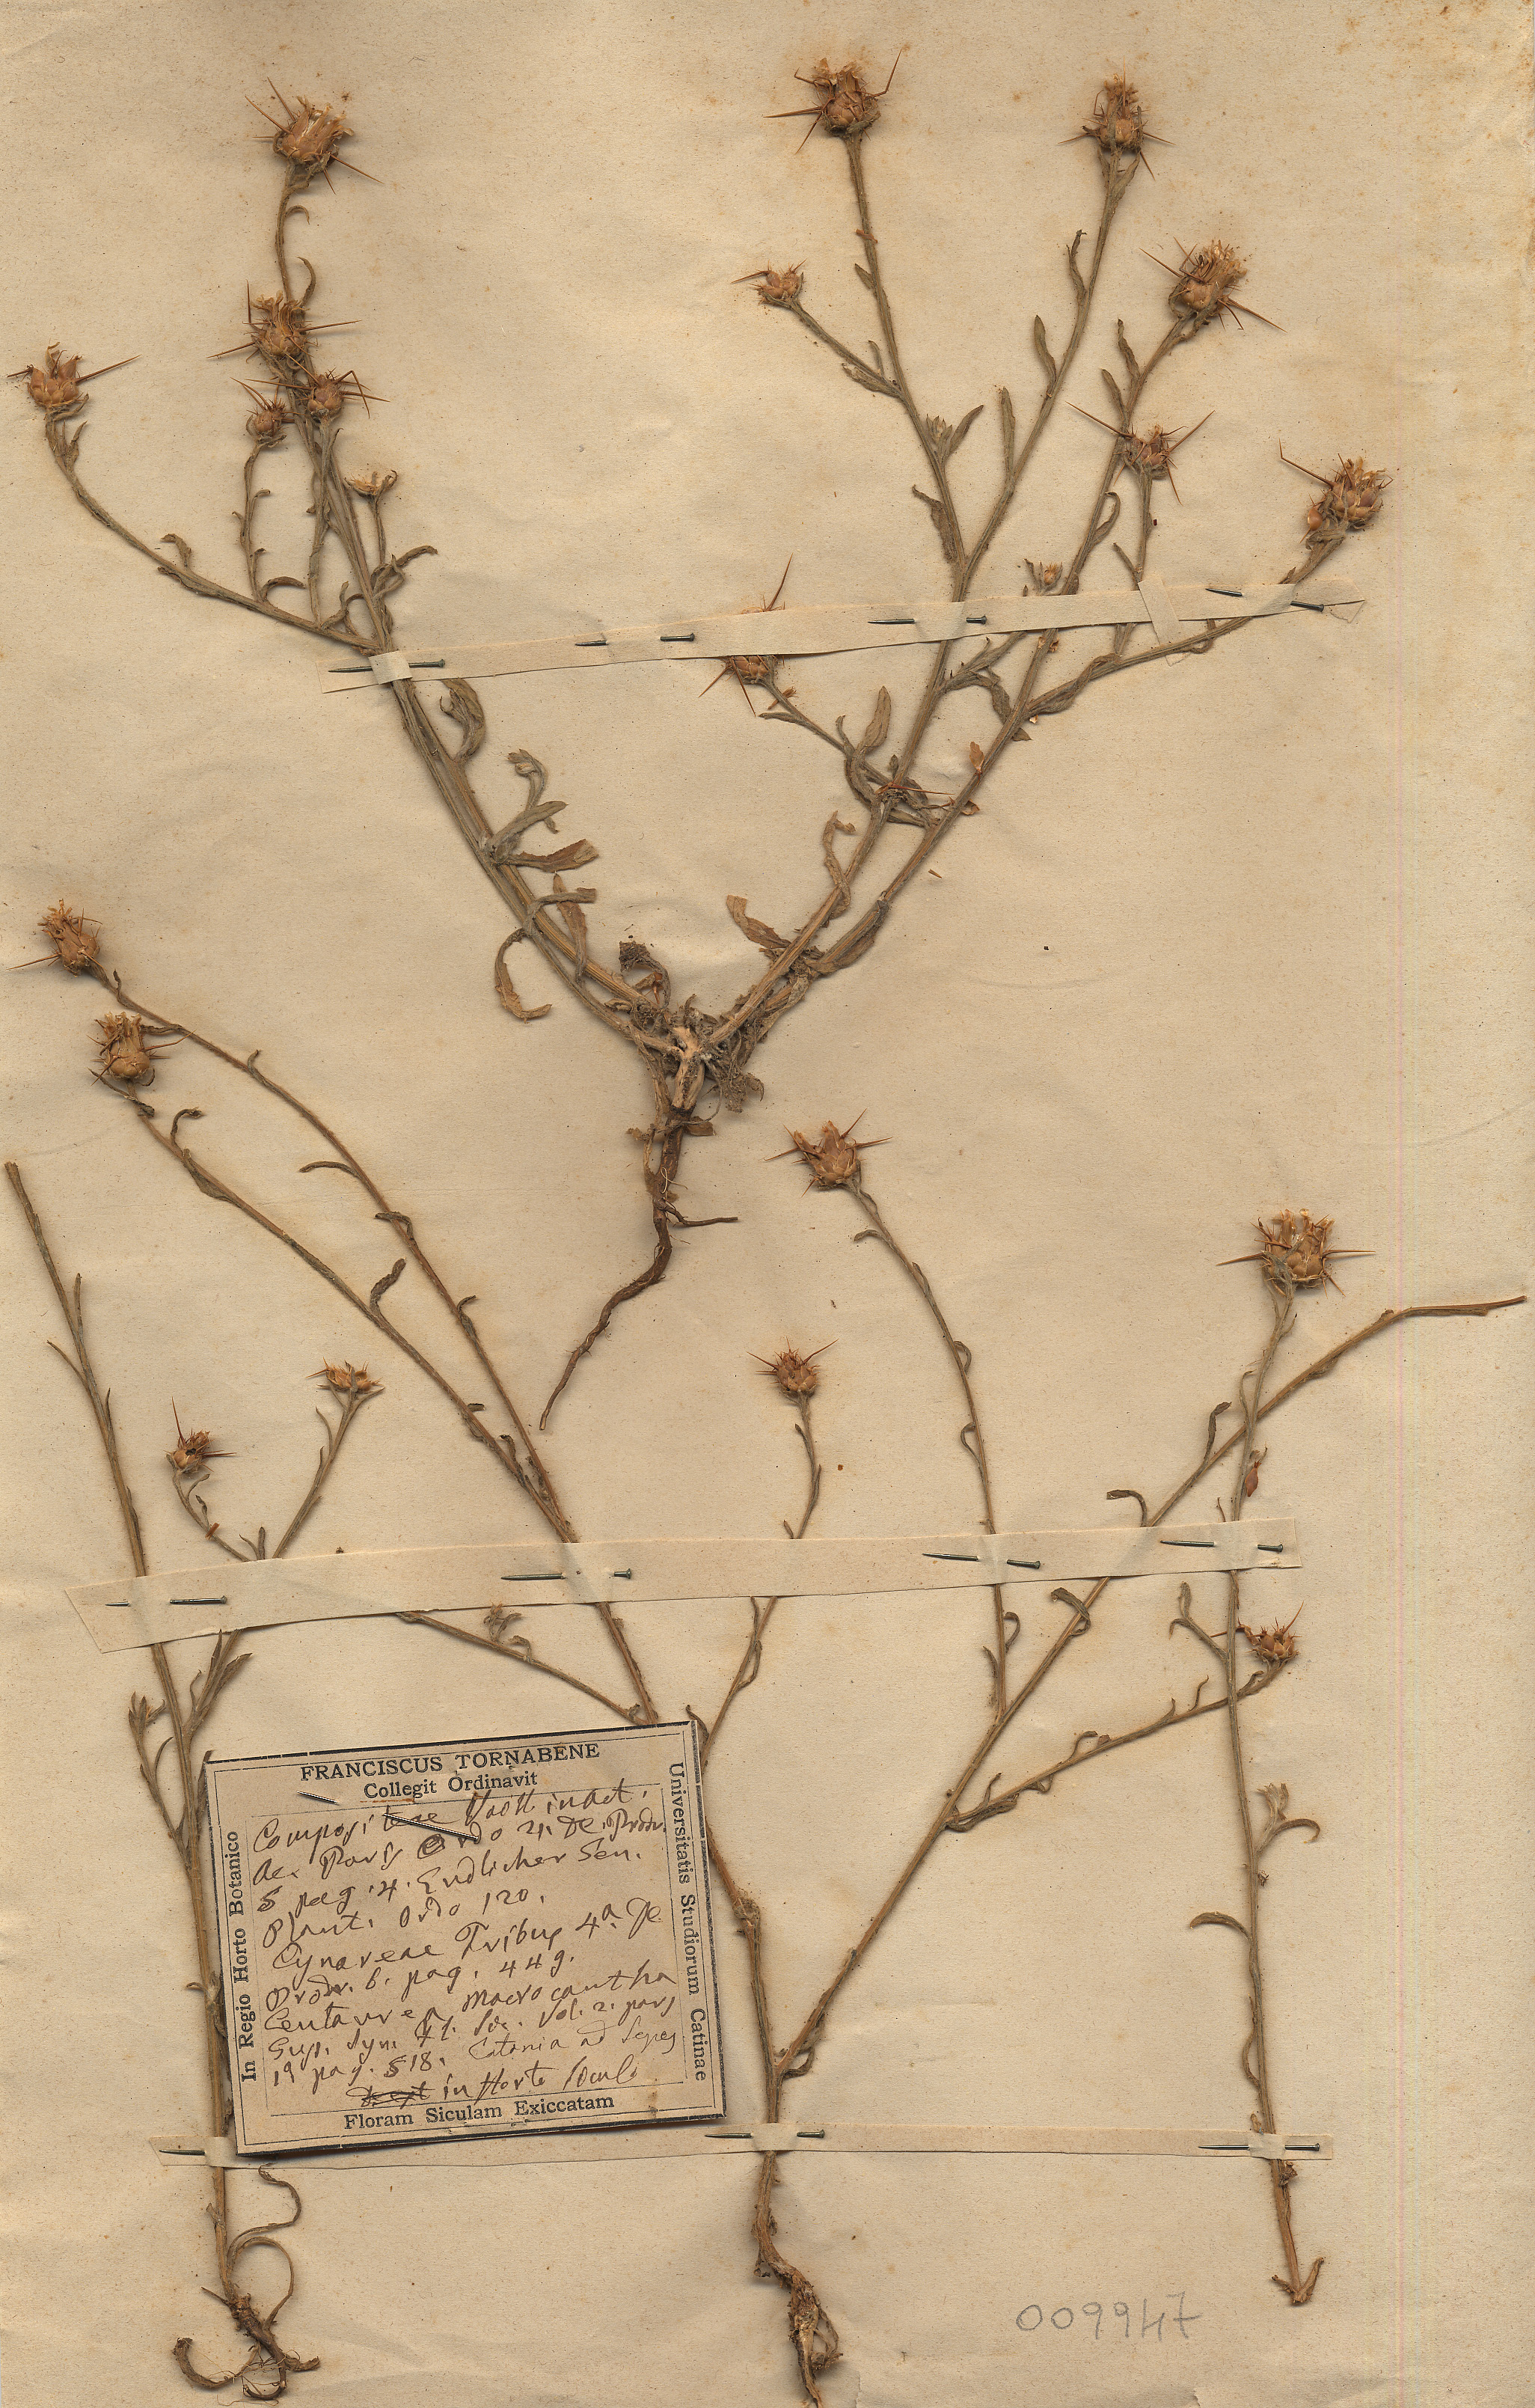 FRANCISCUS TORNABENE
Collegit Ordinavit
In Regio Horto Botanico
Universitatis Studiorum Catinae
Compositeae Vaill in Act.
Ac. Pars Ordo 21. De. Prodr.
5 pag. 4. Endlicher Gen.
Plant. Ordo 120.
Cynareae Tribus 4a. De
Prodr. 6. pag. 449.
Centaurea macrocantha
Gus. Syn. Fl. Sic. Vol. 2. pars
1a pag. 518. Catania ad Sepes
in Horto
Floram Siculam Exiccatam
009947